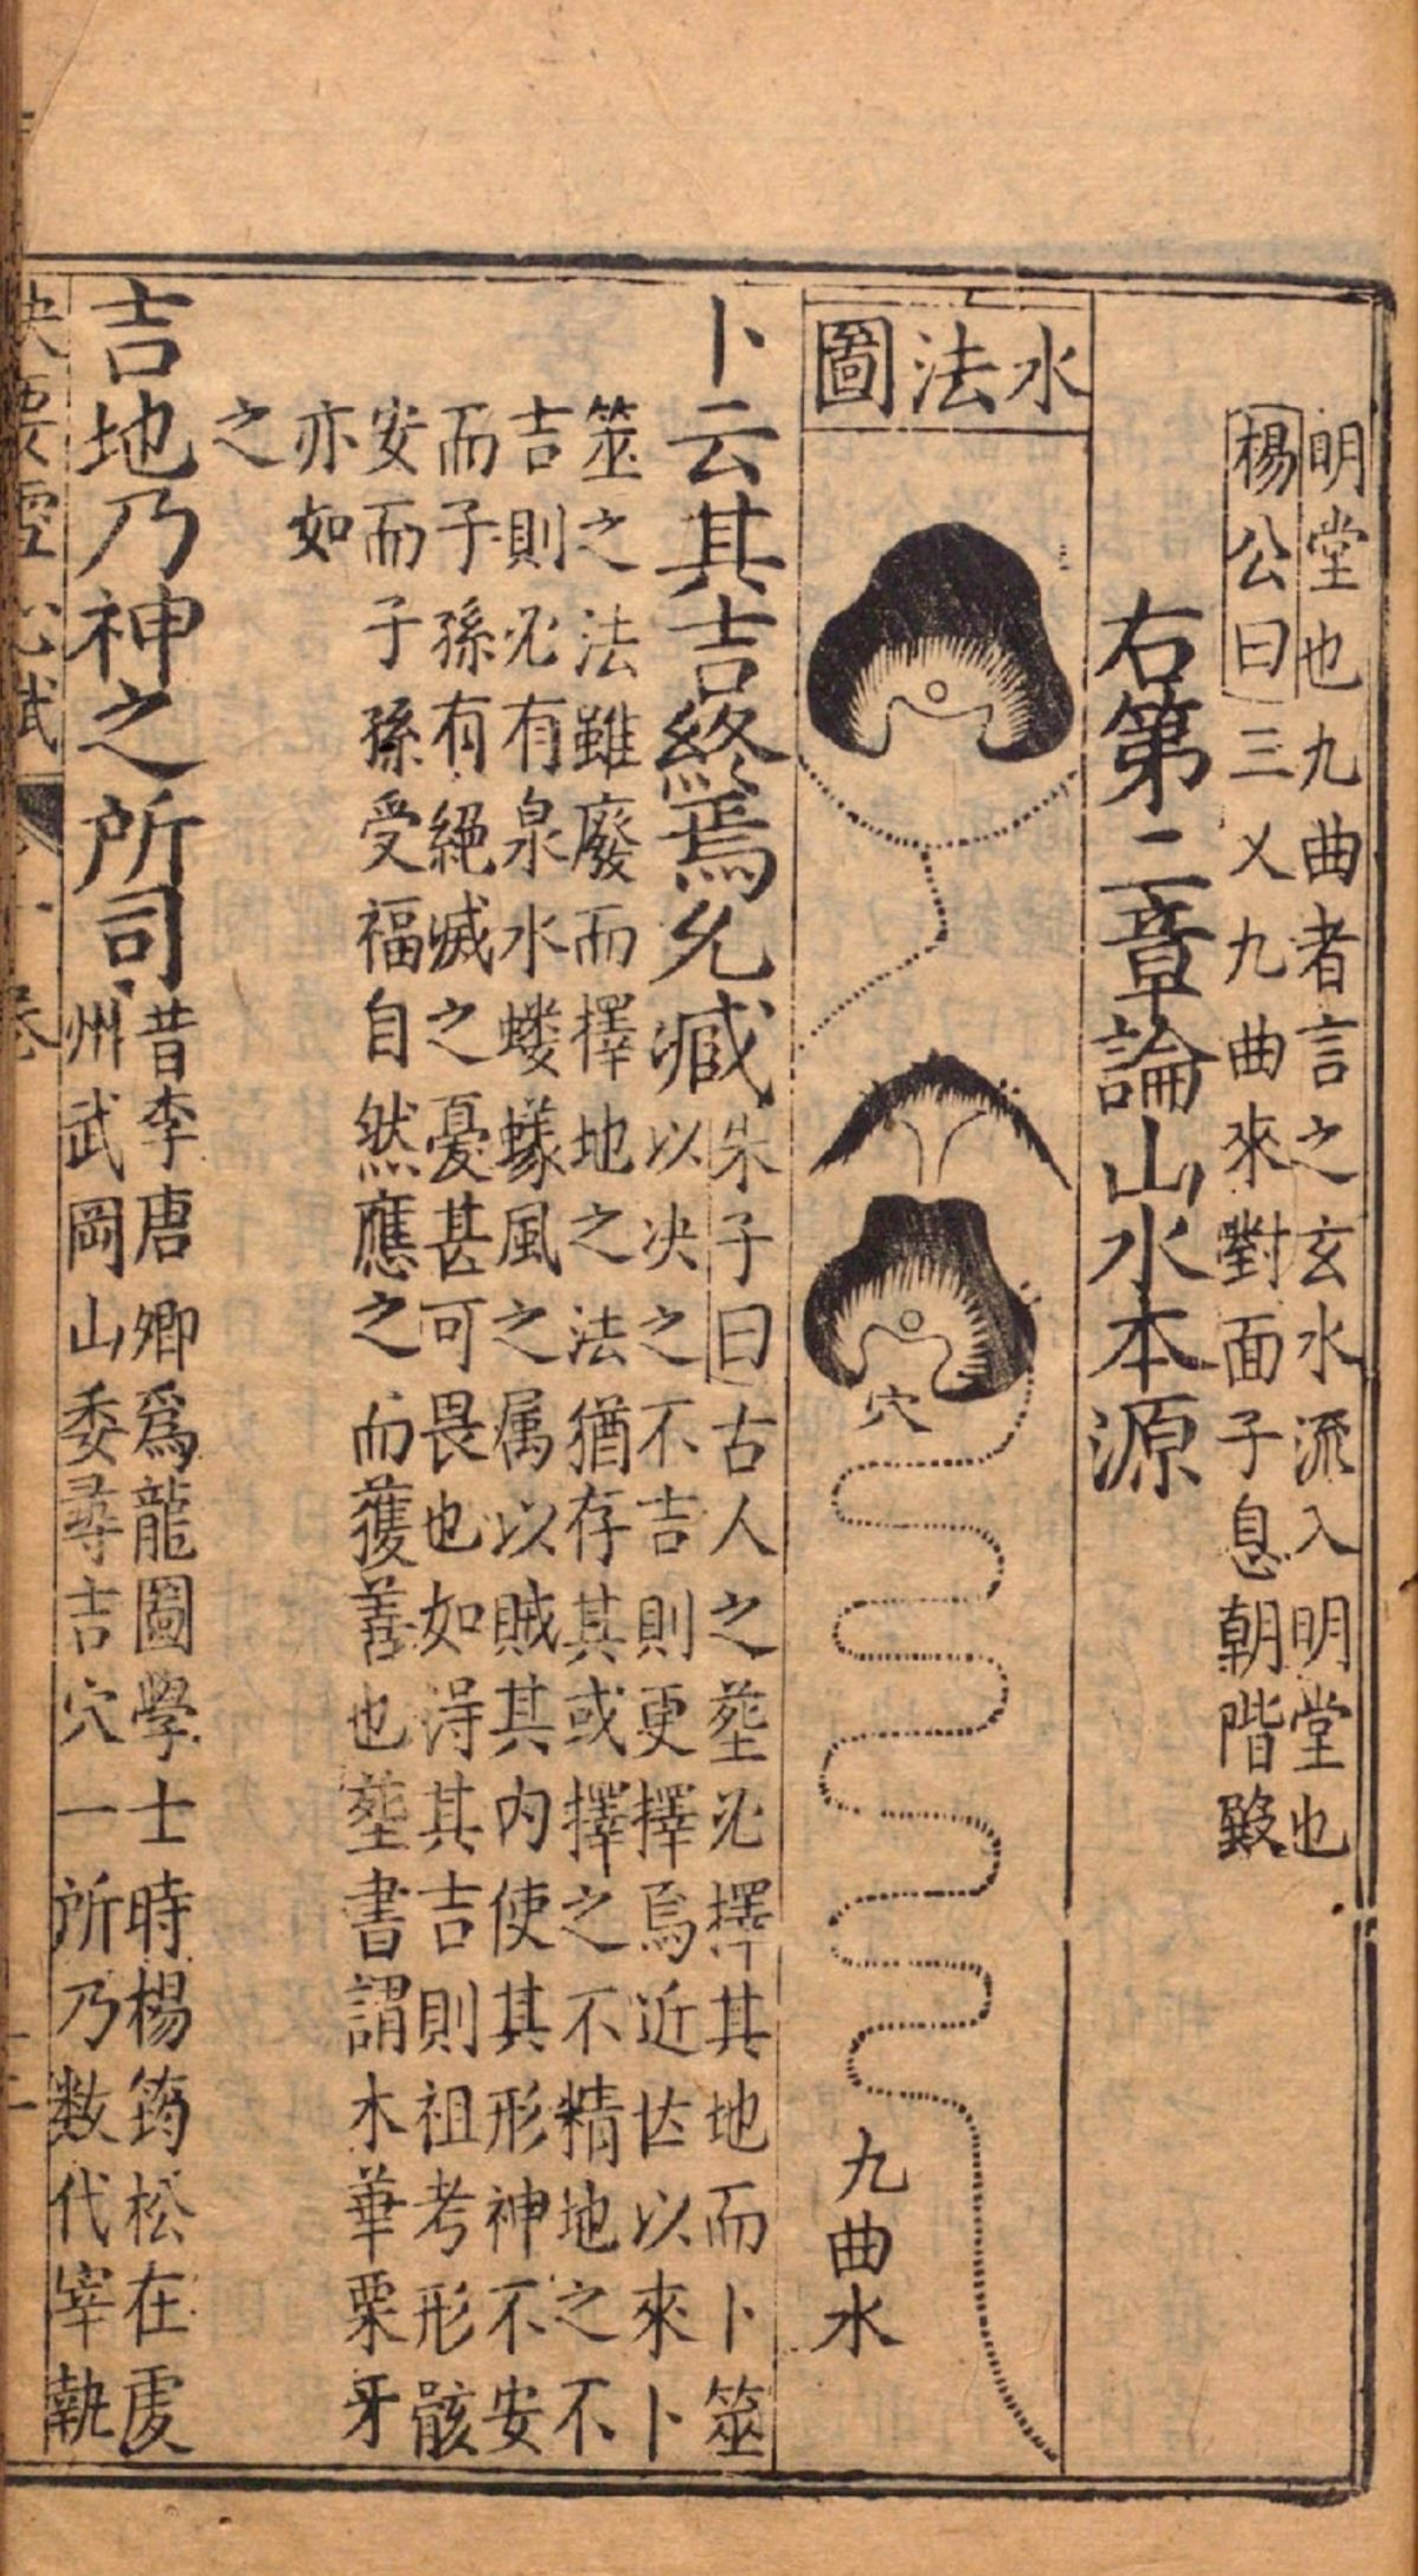 明堂也九曲者言之玄水流入明堂也
楊公曰三乂九曲來對面子息朝階殿
右第二章論山水本源
水法圖
穴
九曲水
卜云其吉終焉允臧
朱子曰古人之塟必擇其地而卜筮
以决之不吉則更擇焉近世以來卜
筮之法雖廢而擇地之法猶存其或擇之不精地之不
吉則必有泉水螻蟻風之属以賊其内使其形神不安
而子孫有絕滅之憂甚可畏也如淂其吉則祖考形骸
安而子孫受福自然應之而獲善也塟書謂木華栗牙
亦如
之
吉地乃神之所司
昔李唐卿爲龍圖學士時楊筠松在䖍
州武岡山委尋吉穴一所乃数代宰執